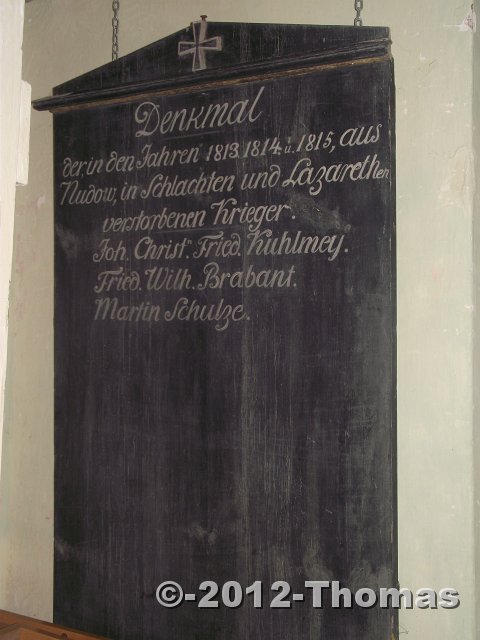 Denkmal
der, in den Jahren 1813 1814 u. 1815, aus
Nudow, in Schlachten und Lazarethen
verstorbenen Krieger.
Joh. Christn. Fried. Kuhlmey.
Fried. Wilh. Brabant.
Martin Schulze.
©-2012-Thomas